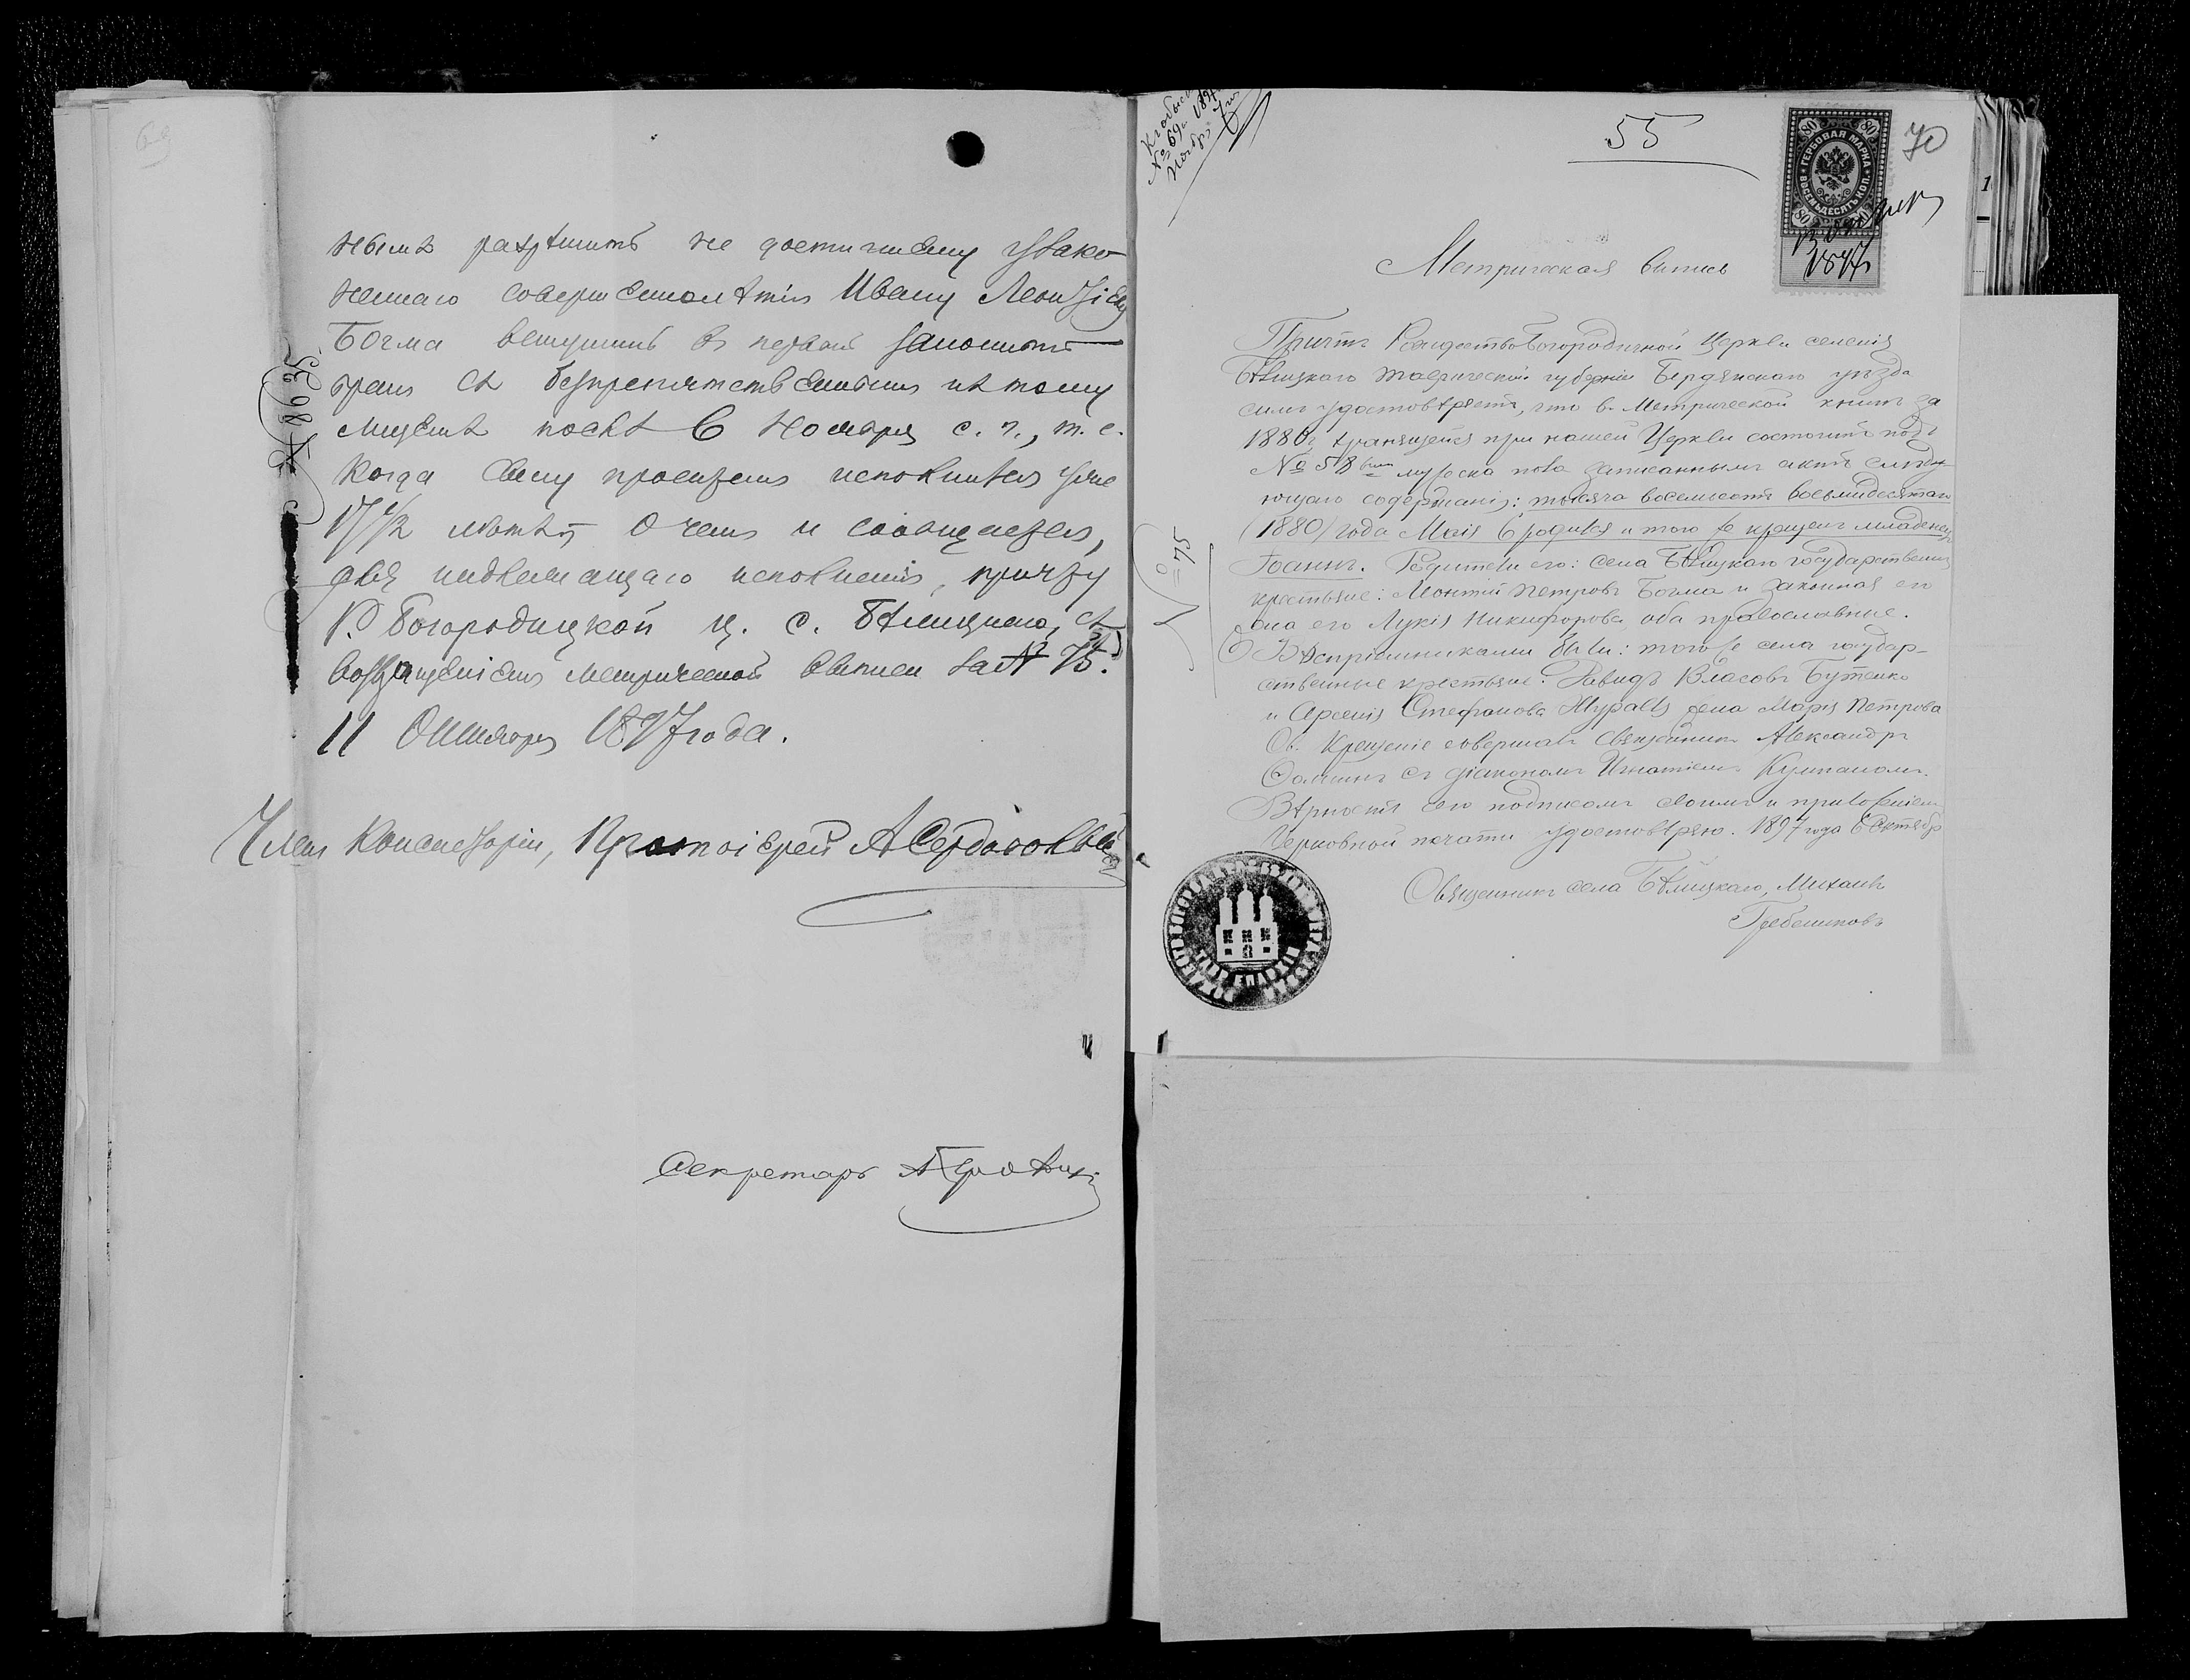 нымъ разрѣшить не достигшему узако-
неннаго совершеннолѣтія Ивану Леонтіеву
Богма вступить въ первый законный
бракъ съ безпрепятственнымъ къ тому
лицемъ послѣ 6 Ноября с. г., т. е.
когда сему просителю исполнится уже
17 1/2 лѣтъ; о чемъ и сообщается,
для надлежащаго исполненія, причту
Р. Богородицкой ц. с. Бѣлицкаго, съ
возвращеніемъ метрической выписи за № 75.
11 Октября 1897 года.
Членъ Консисторіи, Протоіерей А Сердобольскій
Секретарь
18635
55
70
№ 69
ГЕРБОВАЯ МАРКА
ВОСЕМЬДЕСЯТЪ КОП.
80
1897
Метрическая выпись
Причтъ Рождество Богородичной Церкви селенія
Бѣлицкаго Таврической губерніи Бердянскаго уѣзда
симъ удостовѣряетъ, что въ Метрической книгѣ за
1880 г. хранящейся при нашей Церкви состоитъ подъ
№ 58 мужеска пола записаннымъ актъ слѣду-
ющаго содержанія: тысяча восемьсотъ восьмидесятаго
(1880) года Маія 6 родился и того же крещенъ младенецъ
Іоаннъ. Родители его: села Бѣлицкаго государственные
крестьяне: Леонтій Петровъ Богма и законная его
жена его Лукія Никифорова, оба православные.
Воспріемниками были: того же села государ-
ственные крестьяне: Давидъ Власовъ Бутенко
и Арсенія Стефанова Журавль жена Марія Петрова
Св. Крещеніе совершалъ Священникъ Александръ
съ діакономъ Игнатіемъ
Вѣрность сего подписомъ своимъ и приложеніемъ
Церковной печати удостовѣряю. 1897 года
Священникъ села Бѣлицкаго, Михаилъ
Гребенниковъ
№ 75